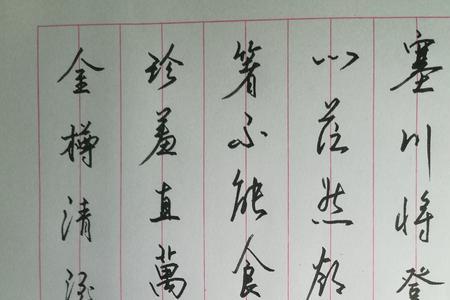 金樽清酒
珍羞直萬
箸不能食
心茫然欲
塞川将登